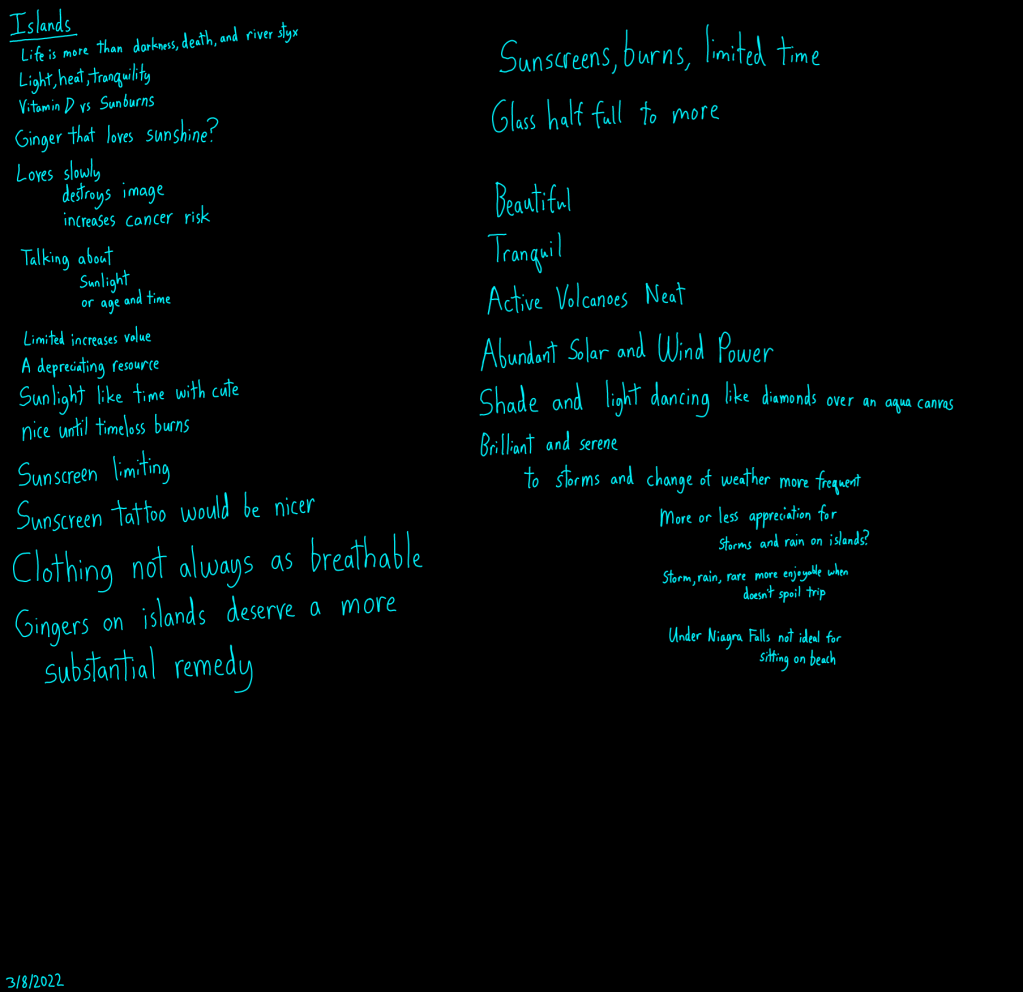 Islands
Life is more than darkness, death, and river styx
Light, heat, tranquility
Vitamin D vs Sunburns
Ginger that loves sunshine?
Loves slowly
destroys image
increases cancer risk
Talking about
Sunlight
or age and time
Limited increases value
A depreciating resource
Sunlight like time with cute
nice until timeloss burns
Sunscreen limiting
Sunscreen tattoo would be nicer
Clothing not always as breathable
Gingers on islands deserve a more
substantial remedy
Sunscreens, burns, limited time
Glass half full to more
Beautiful
Tranquil
Active Volcanoes Neat
Abundant Solar and Wind Power
Shade and light dancing like diamonds over an aqua canvas
Brilliant and serene
to storms and change of weather more frequent
More or less appreciation for
Storms and rain on islands?
Storm, rain, rare more enjoyable when
doesn't spoil trip
Under Niagra Falls not ideal for
sitting on beach
3/8/2022